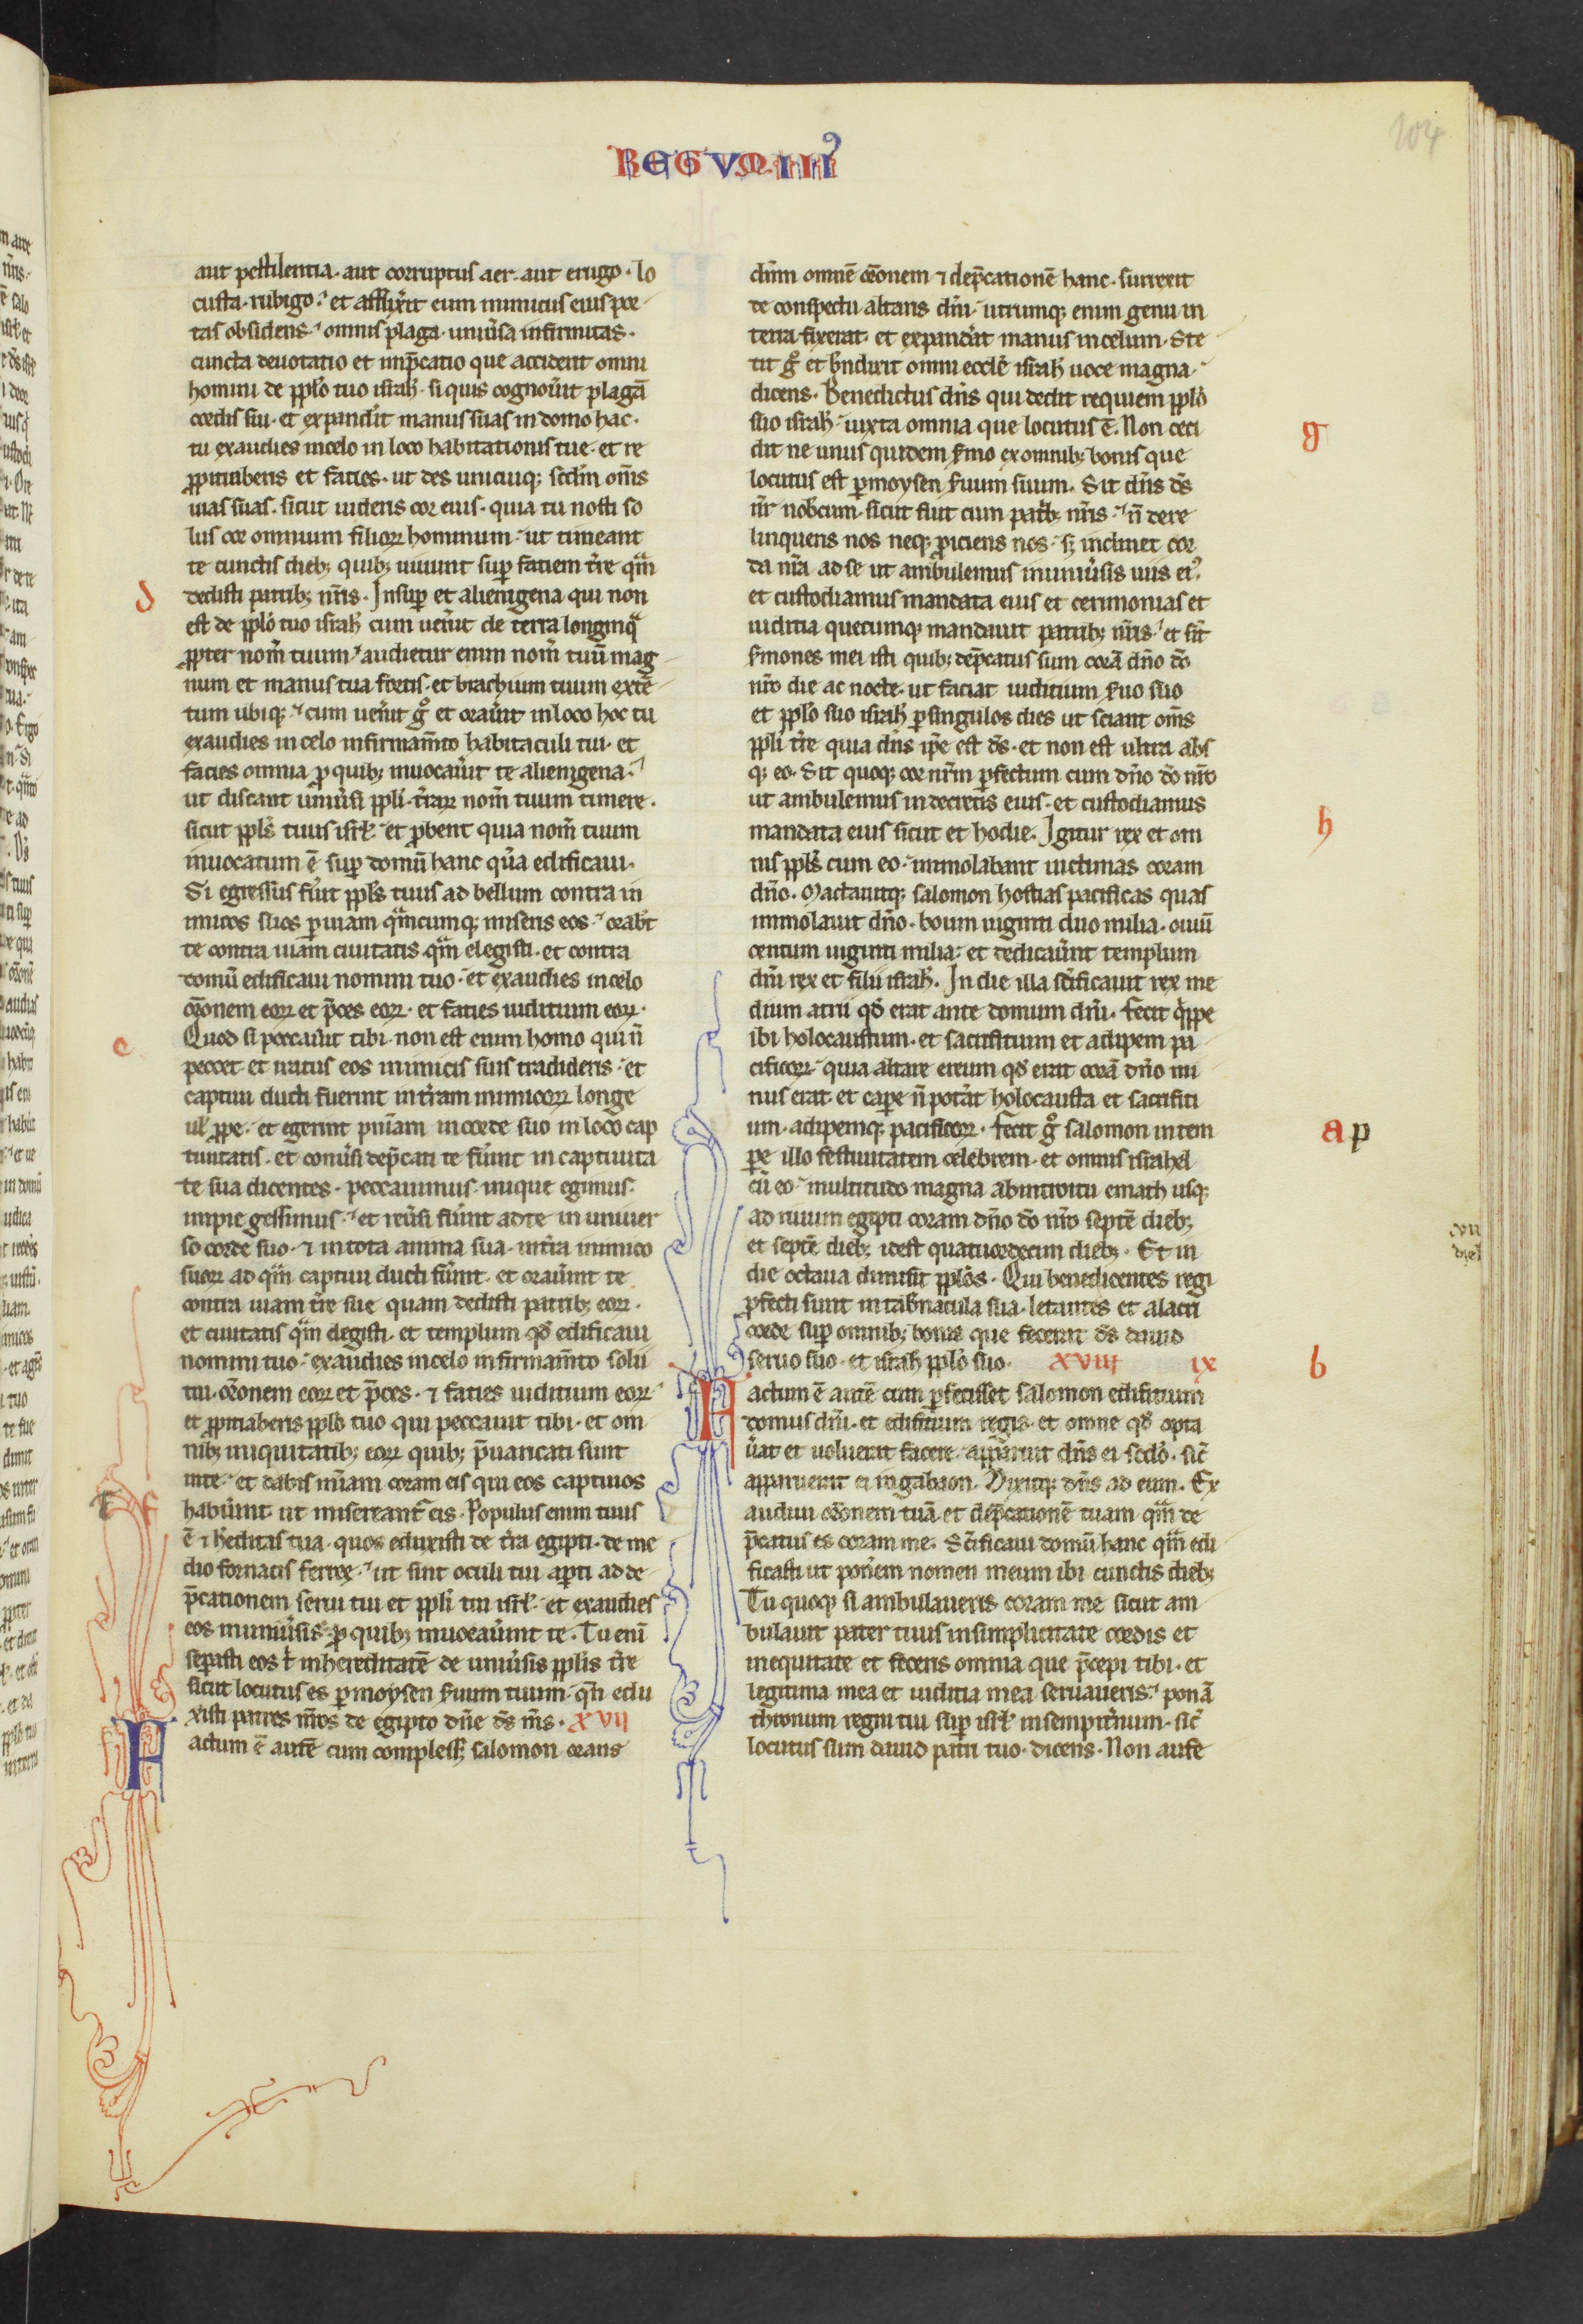 104
REGVM·III
aut pestilentia· aut corruptus aer· aut erugo· lo
custa· rubigo· et afflixerit eum inimicus eius por
tas obsidens· omnis plaga· uniũsa infirmitas·
cuncta deuotatio et imp̃catio que accident omni
homini de pp̃lo tuo israh̃· si quis cognoũit plagã
cordis sui· et expandit manus suas in domo hac·
tu exaudies in celo in loco habitationis tue· et re
ppitiaberis et facies· ut des unicuiq; sc̃dm om̃s
uias suas· sicut uideris cor eius· quia tu nosti so
lus cor omnium filioꝝ hominum· ut timeant
te cunctis dieb; quib; uiuunt suꝑ faciem t̃re qm̃
d
dedisti patrib; nr̃is· Insuꝑ et alienigena qui non
est de pp̃lo tuo israh̃ cum ueñit de terra longinq̃
ꝓpter nom̃ tuum· audietur enim nom̃ tuũ mag
num et manus tua fortis· et brachium tuum extẽ
tum ubiq;· cum ueñit g̊ et orãuit in loco hoc tu
exaudies in celo in firmam̃to habitaculi tui· et
facies omnia ꝓ quib; inuocaũit te alienigena·
ut discant uniũsi pp̃li t̃raꝝ nom̃ tuum timere·
sicut pp̃ls tuus isrl̃· et ꝓbent quia nom̃ tuum
inuocatum ẽ suꝑ domũ hanc quã edificaui·
Si egressus fũit pp̃ls tuus ad bellum contra in
imicos suos ꝑ uiam qm̃cumq; miseris eos· orabt̃
te contra uiam ciuitatis qm̃ elegisti· et contra
domũ edificaui nomini tuo· et exaudies in celo
or̃onem eoꝝ et p̃ces eoꝝ· et facies iuditium eoꝝ·
e
Quod si peccaũit tibi· non est enim homo qui ñ
peccet· et iratus eos inimicis suis tradideris· et
captiui ducti fuerint in t̃ram inimicoꝝ longe
ul̃ ꝓpe· et egerint pniam̃ in corde suo in loco cap
tiuitatis· et conũsi dep̃cati te fũint in captiuita
te sua dicentes· peccauimus· inique egimus·
impie gessimus· et reũsi fũint ad te in uniuer
so corde suo· ⁊ in tota anima sua· in t̃ra inimico
suoꝝ ad qm̃ captiui ducti fũint· et oraũint te
contra uiam t̃re sue quam dedisti patrib; eoꝝ·
et ciuitatis qm̃ elegisti· et templum qd̃ edificaui
nomini tuo· exaudies in celo in firmam̃to solii
tui· or̃onem eoꝝ et p̃ces· ⁊ facies iuditium eoꝝ·
et ꝓpitiaberis pp̃lo tuo qui peccauit tibi· et om
nib; iniquitatib; eoꝝ quib; p̃uaricati sunt
in te· et dabis mĩam coram eis qui eos captiuos
habũint· ut misereant̃ eis· Populus enim tuus
ẽ ⁊ h̃editas tua· quos eduxisti de t̃ra egipti· de me
dio fornacis ferree· ut sint oculi tui aꝑti ad de
p̃cationem serui tui et pp̃li tui isrl̃· et exaudies
eos in uniũsis ꝓ quib; inuocaũint te· Tu enĩ
seꝑasti eos t̃ in hereditatẽ de uniũsis pp̃lis t̃re
sicut locutus es ꝑ moysen s̃uum tuum· qñ edu
xisti patres nr̃os de egipto dñe ds̃ m̃s· XVII
Factum ẽ autẽ cum compless; salomon orans
dñm omnẽ or̃onem ⁊ dep̃cationẽ hanc· surrexit
de conspectu altaris dñi· utrumq; enim genu in
terra fixerat· et expandat̃ manus in celum· Ste
tit g̊ et bñdixit omni eccl̃e israh̃ uoce magna·
dicens· Benedictus dñs qui dedit requiem pp̃lo
g
suo israh̃· iuxta omnia que locutus ẽ· Non ceci
dit ne unus quidem s̃mo ex omnib; bonis que
locutus est ꝑ moysen s̃uum suum· Sit dñs ds̃
nr̃ nobcum· sicut fuit cum patrib; nr̃is· ñ dere
linquens nos neq; ꝓiciens nos· s; inclinet cor
da nr̃a ad se ut ambulemus in uniũsis uiis ei᷒·
et custodiamus mandata eius et cerimonias et
iuditia quecumq; mandauit patrib; nr̃is· et sĩt
s̃mones mei isti quib; dep̃catus sum corã dño dõ
nr̃o die ac nocte· ut faciat iuditium s̃uo suo
et pp̃lo suo israh̃ ꝑ singulos dies ut sciant om̃s
pp̃li t̃re quia dñs ip̃e est ds̃· et non est ultra abs
q; eo· Sit quoq; cor nr̃m ꝑfectum cum dño dõ nr̃o
ut ambulemus in decretis eius· et custodiamus
h
mandata eius sicut et hodie· Igitur rex et om
nis pp̃ls cum eo· immolabant uictimas coram
dño· Mactauitq; salomon hostias pacificas quas
immolauit dño· boum uiginti duo milia· ouiũ
centum uiginti milia· et dedicaũunt templum
dñi rex et filii israh̃· In die illa sc̃ificauit rex me
dium atrii qd̃ erat ante domum dñi· fecit q̃ppe
ibi holocaustum· et sacrifitium et adipem pa
cificoꝝ· quia altare ereum qd̃ erat corã dño mi
nus erat· et caꝑe ñ potat̃ holocausta et sacrifiti
a p
um· adipemq; pacificoꝝ· fecit g̊ salomon in tem
pe illo festiuitatem celebrem· et omnis israhel
cũ eo· multitudo magna ab introitu emath usq;
ad riuum egipti coram dño dõ nr̃o septẽ dieb;
et septẽ dieb; idest quatuordecim dieb;· Et in
die octaua dimisit pp̃los· Qui benedicentes regi
ꝓfecti sunt in tab̃nacula sua· letantes et alacri
corde suꝑ omnib; bonis que fecerat ds̃ dauid
seruo suo· et israh̃ pp̃lo suo· XVIII IX
b
Factum ẽ autẽ cum ꝑfecisset salomon edifitium
domus dñi· et edifitium regis· et omne qd̃ opta
ũat et uoluerat facere· apparuit dñs ei sc̃do· sic̃
apparuerat ei in gabaon· Dixitq; dñs ad eum· Ex
audiui or̃onem tuã et dep̃cationẽ tuam qm̃ de
p̃catus es coram me· Sc̃ificaui domũ hanc qm̃ edi
ficasti ut poñem nomen meum ibi cunctis dieb;
Tu quoq; si ambulaueris coram me sicut am
bulauit pater tuus in simplicitate cordis et
in equitate et feceris omnia que p̃cepi tibi· et
legitima mea et iuditia mea seruaueris· ponã
thronum regni tui suꝑ isrl̃ in sempit̃num· sic̃
locutus sum dauid patri tuo· dicens· Non aufe